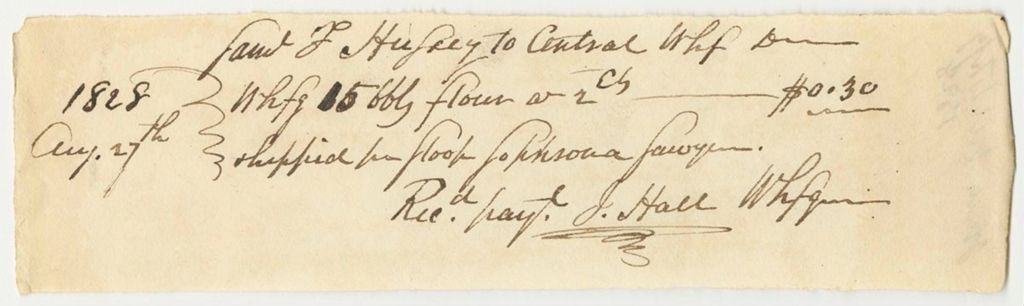 Saml F Hussey to Central Whf Dr
1828 Whfg 15 bbls flour @ 2cts $0.30
Aug. 27th shipped pr Sloop Sawyer.
Recd. payt. J. Hall Whfgr